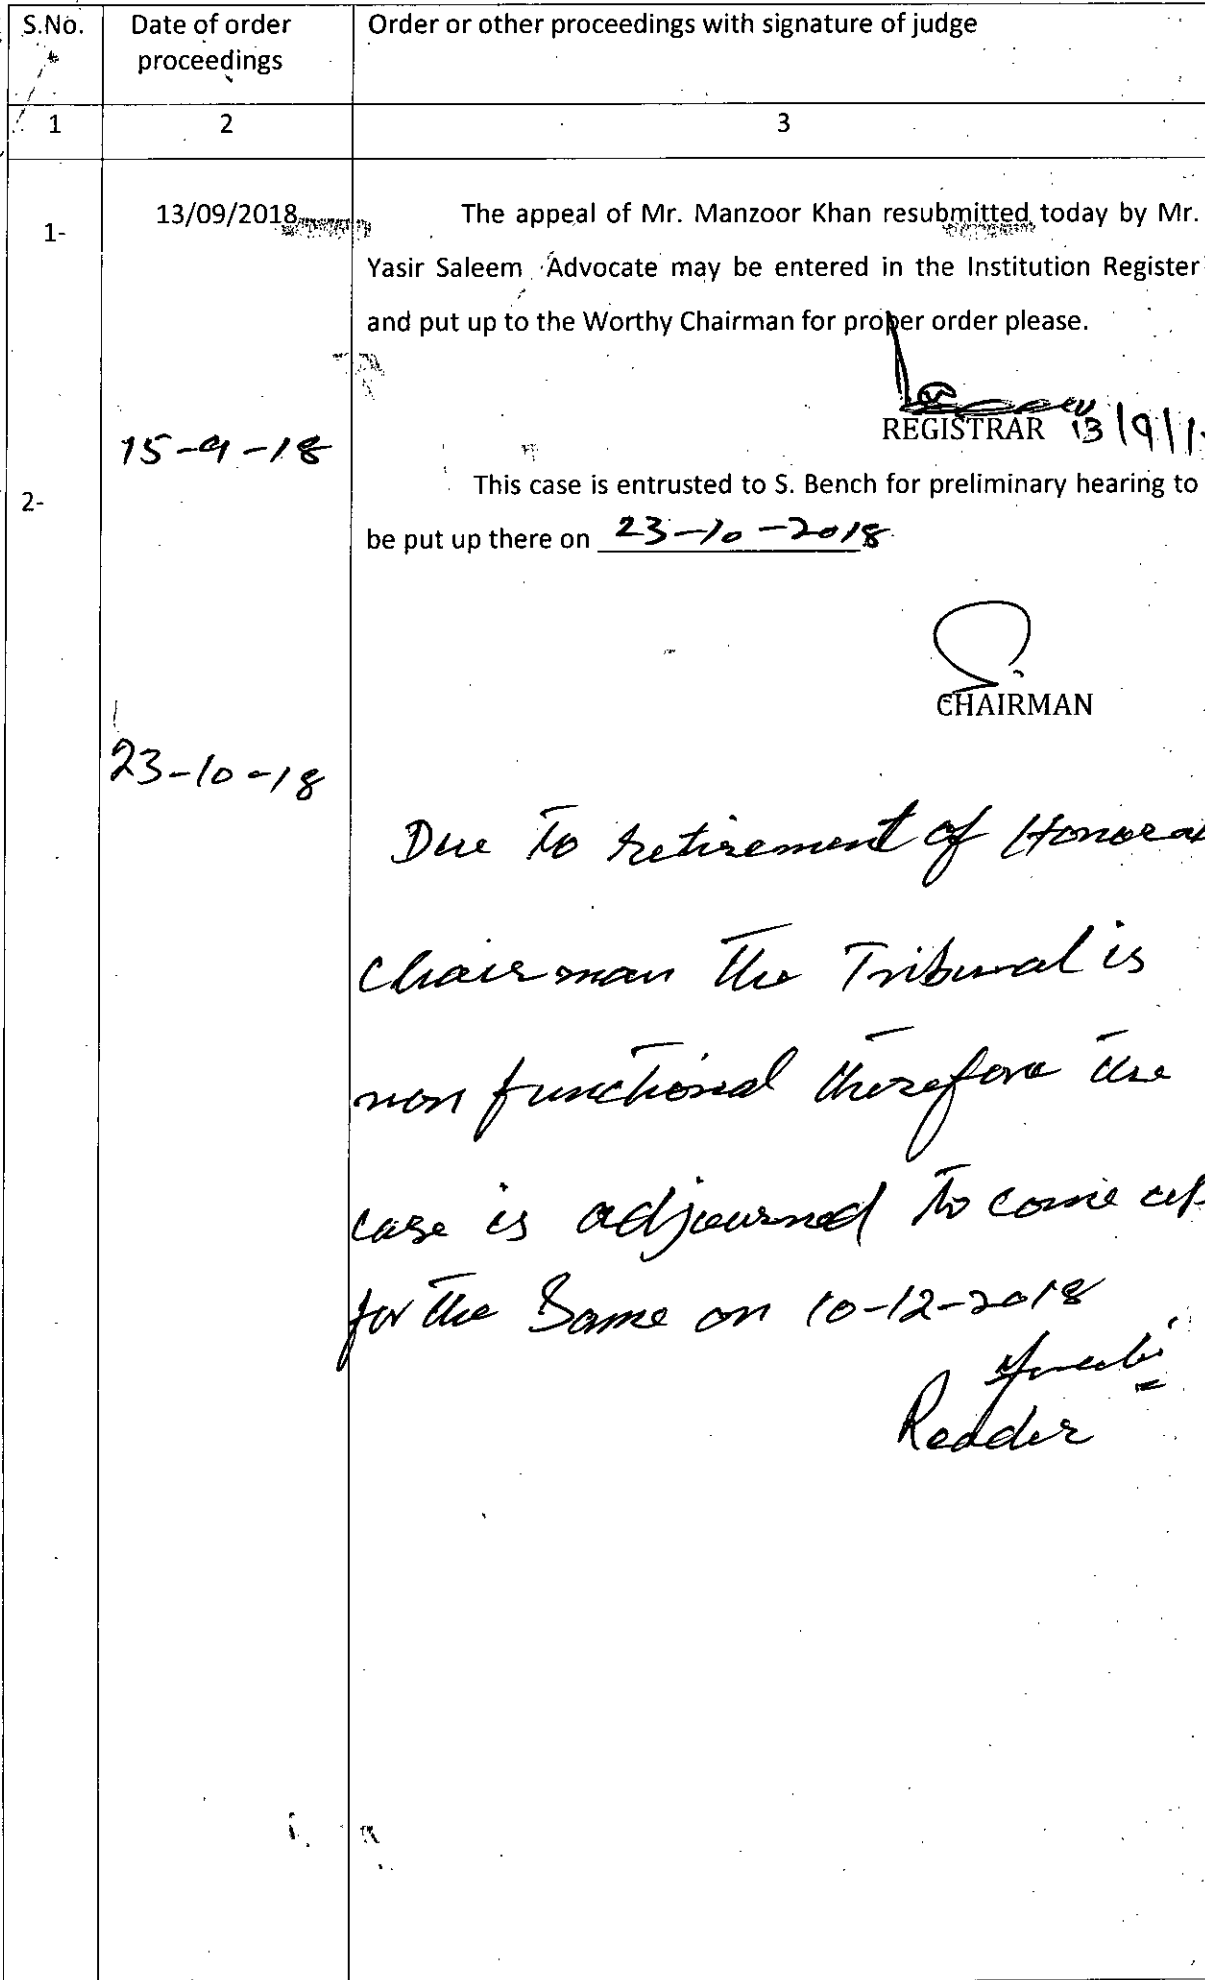 S.No.
Date of order
proceedings
Order or other proceedings with signature of judge
1
2
3
1-
13/09/2018
The appeal of Mr. Manzoor Khan resubmitted today by Mr.
Yasir Saleem Advocate may be entered in the Institution Register
and put up to the Worthy Chairman for proper order please.
REGISTRAR 13/9/1
2-
15-9-18
This case is entrusted to S. Bench for preliminary hearing to
be put up there on 23-10-2018
CHAIRMAN
23-10-18
Due to retirement of Honora
Chairman the Tribunal is
non functional therefore the
case is adjourned to come up
for the Same on 10-12-2018
Reader